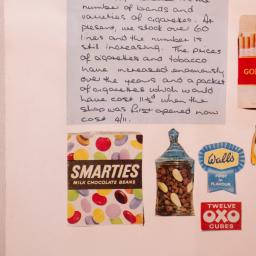 number of brands and
varieties of cigarettes. At
present, we stock over 60
lines and the number is
still increasing. The prices
of cigarettes and tobacco
have increased enormously
over the years and a packet
of cigarettes which would
have cost 11½ᵈ when the
shop was first opened now
cost 4/11.
GOL
SMARTIES
MILK CHOCOLATE BEANS
Walls
FIRST
in
FLAVOUR
TWELVE
OXO
CUBES